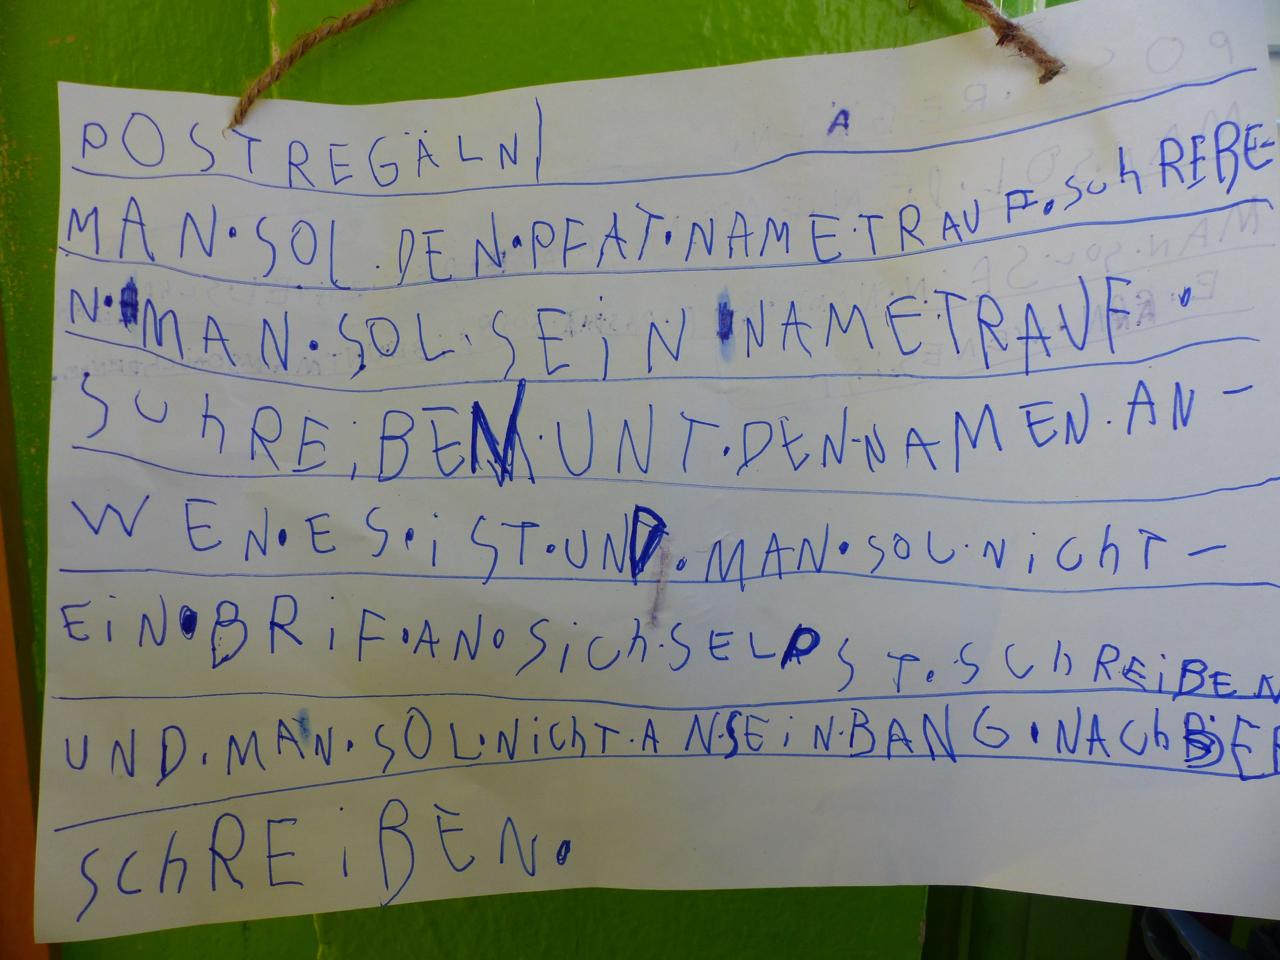 POSTREGÄLN
A
MAN·SOL·DEN·PFAT·NAME·TRAUF·SCHREIBE-
N·MAN·SOL·SEiN NAMETRAUF·
SCHREiBEN·UNT·DEN·NAMEN·AN-
WEN·ES·iST·UND·MAN·SOL·NiChT-
EiN·BRiF·AN·SiCh·SELPST·SChREiBEN
UND·MAN·SOL·NiChT·AN·SEiN·BANG·NACh
SChREiBEN.